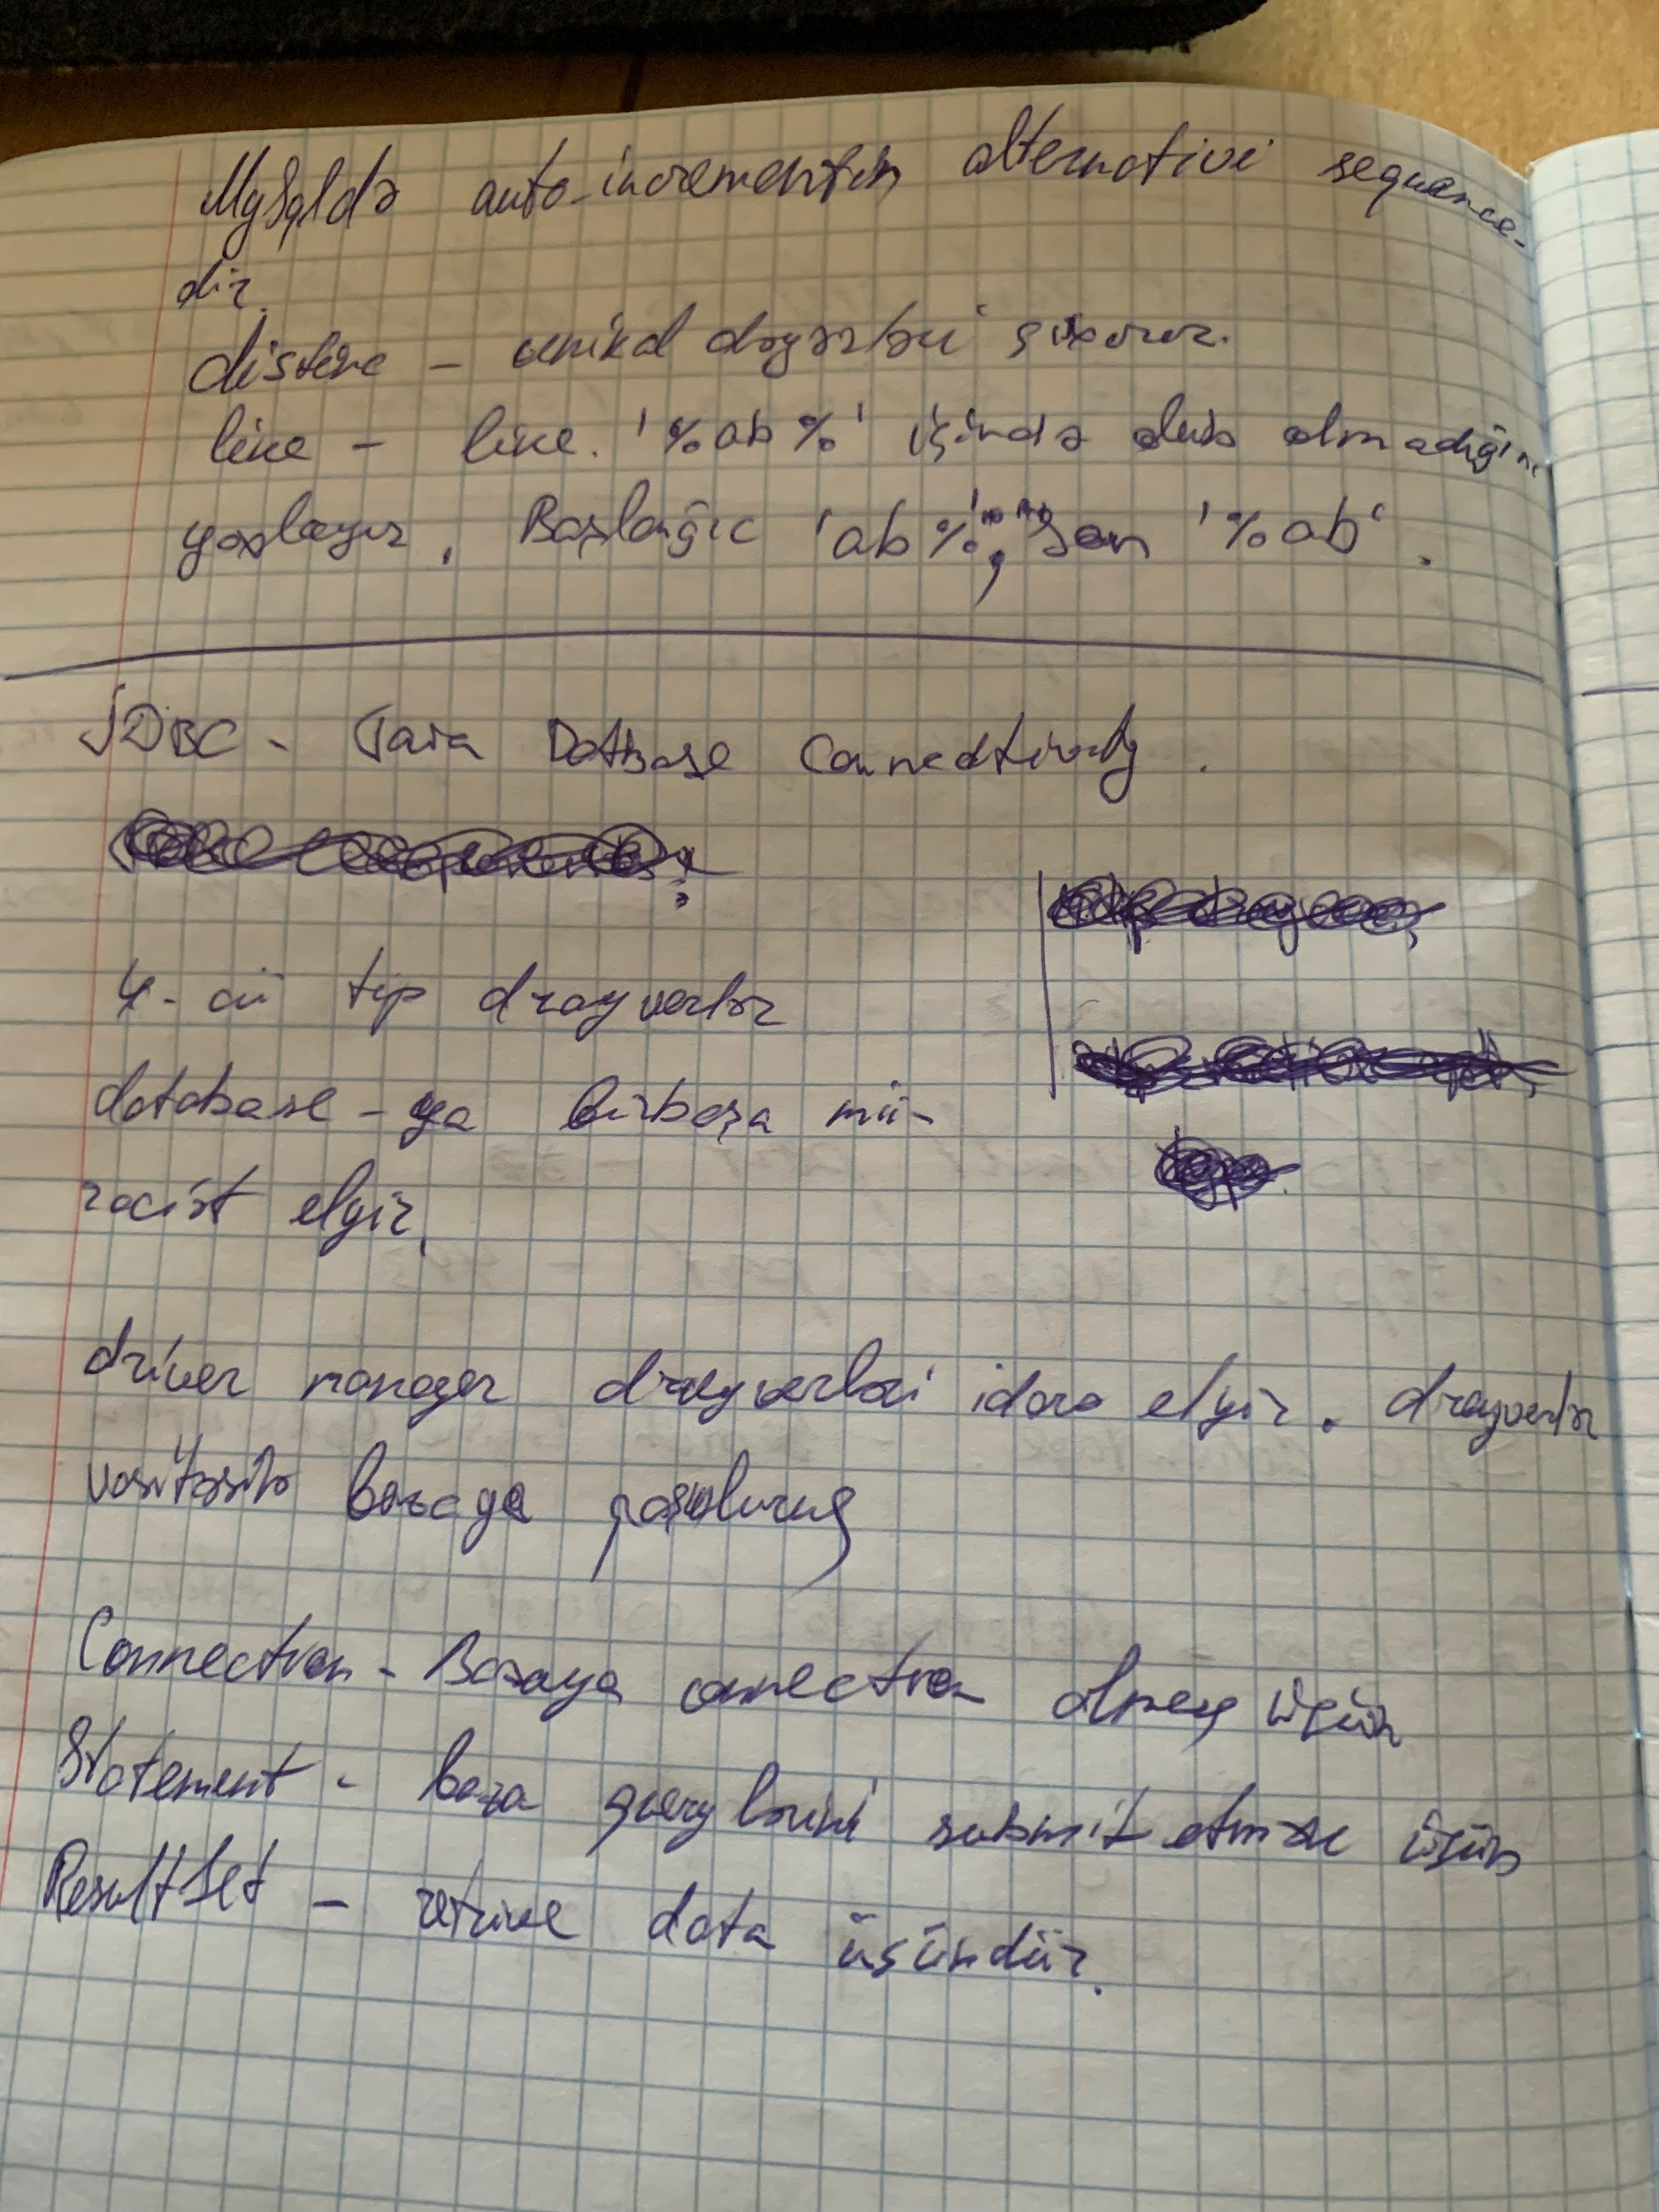 MySqldə auto-incrementin alternativi sequence-
dir.
distinc - unikal dəyərləri çıxarır.
like - like. '%ab%' içində olub olmadığını
yoxlayır. Başlanğıc 'ab%', son '%ab'.
JDBC - Java Database Connectivity.
4-cü tip drayverlər
database-ya birbaşa mü-
raciət eləyir.
driver manager drayverləri idarə eləyir. drayverlər
vasitəsilə bazaya qoşuluruq
Connection - Bazaya connection olmaq üçün
Statement - baza querylərini submit etmək üçün
ResultSet - retrive data üçündür.